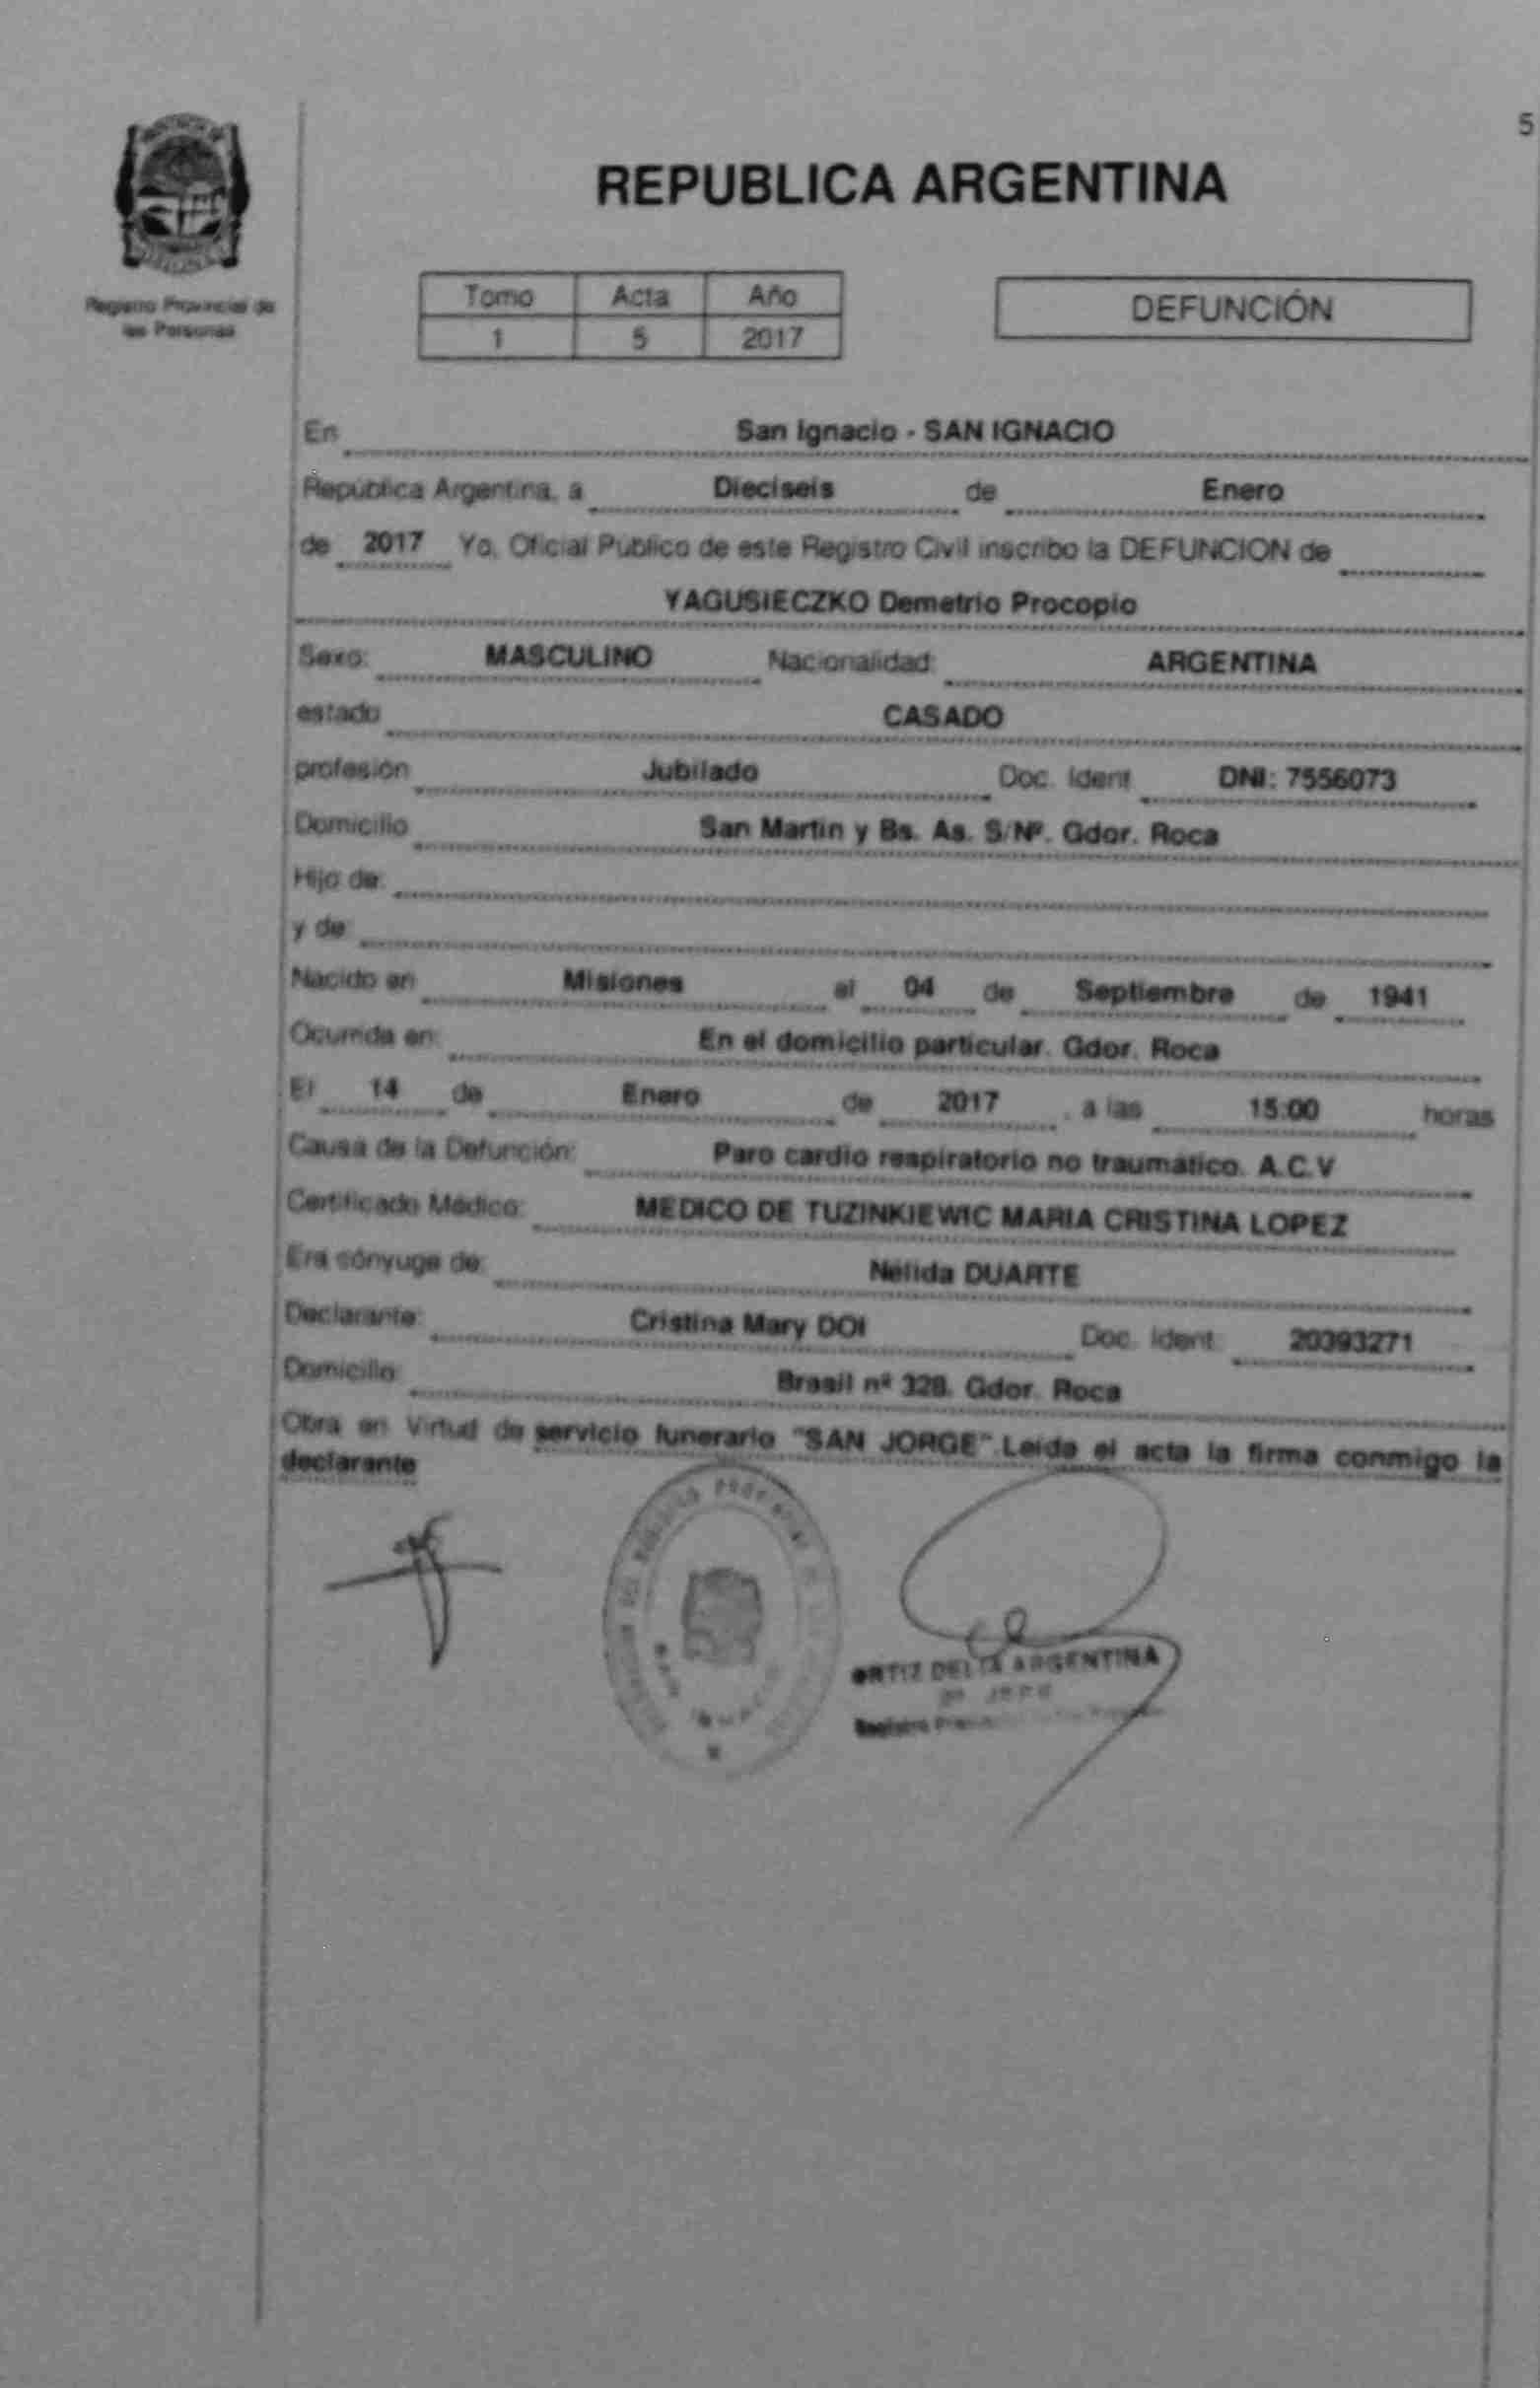 5
REPUBLICA ARGENTINA
Registro Provincial de
las Personas
Tomo Acta Año
1 5 2017
DEFUNCIÓN
En San Ignacio - SAN IGNACIO
República Argentina, a Dieciseis de Enero
de 2017 Yo, Oficial Público de este Registro Civil inscribo la DEFUNCION de
YAGUSIECZKO Demetrio Procopio
Sexo: MASCULINO Nacionalidad: ARGENTINA
estado CASADO
profesión Jubilado Doc. Ident DNI: 7556073
Domicilio San Martin y Bs. As. S/Nº. Gdor. Roca
Hijo de:
y de
Nacido en Misiones el 04 de Septiembre de 1941
Ocurrida en: En el domicilio particular. Gdor. Roca
El 14 de Enero de 2017 , a las 15:00 horas
Causa de la Defunción: Paro cardio respiratorio no traumatico. A.C.V
Certificado Médico: MEDICO DE TUZINKIEWIC MARIA CRISTINA LOPEZ
Era cónyuge de: Nélida DUARTE
Declarante: Cristina Mary DOI Doc. Ident: 20393271
Domicilio: Brasil nº 328. Gdor. Roca
Obra en Virtud de servicio funerario "SAN JORGE".Leida el acta la firma conmigo la
declarante
ORTIZ DELIA ARGENTINA
Registro